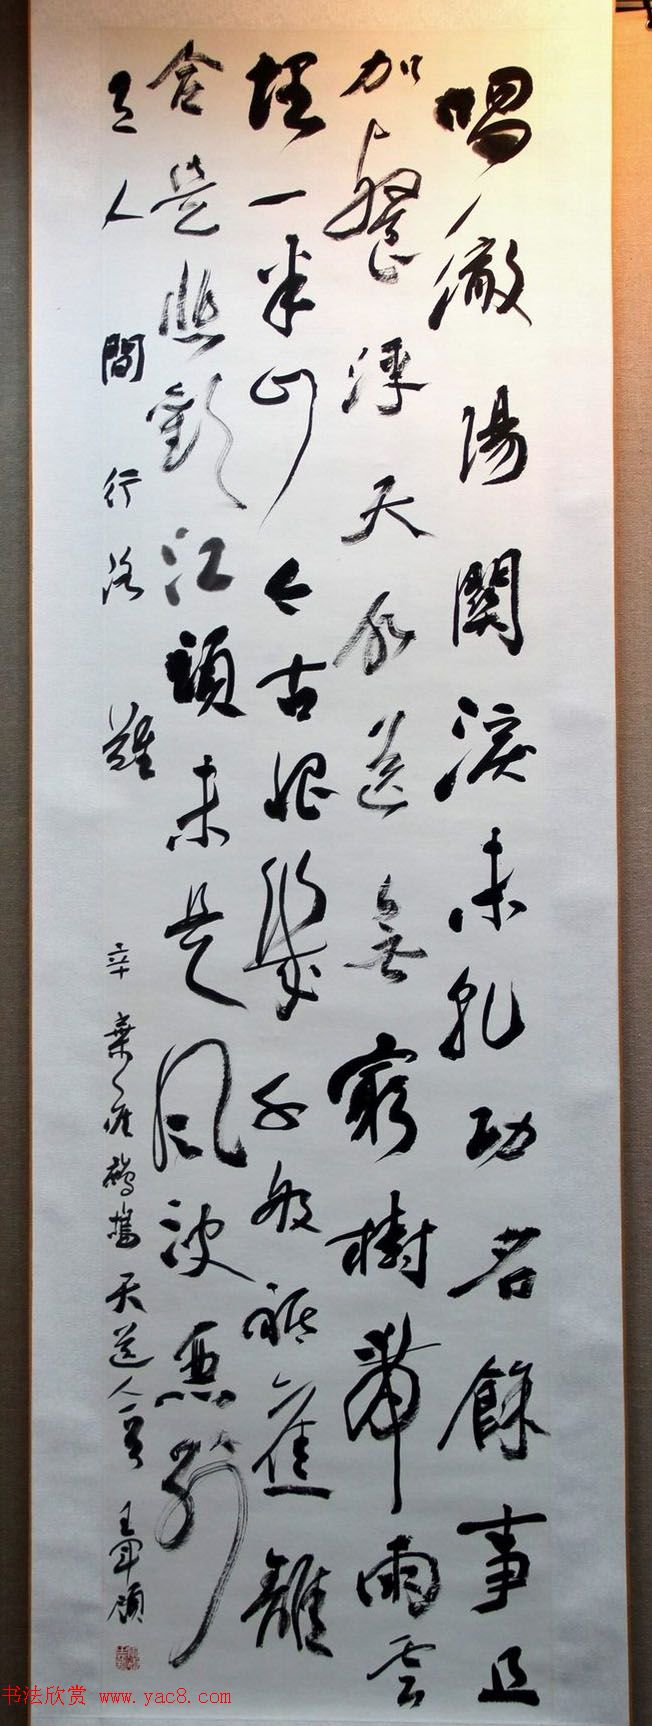 唱徹陽關淚未乾功名餘事且
加餐浮天水送無窮樹帶雨云
埋一半山今古恨幾千般祗應離
合是悲歡江頭未是風波惡別
有人間行路難 辛棄疾鷓鴣天送人一首 王軍
书法欣赏 www.yac8.com